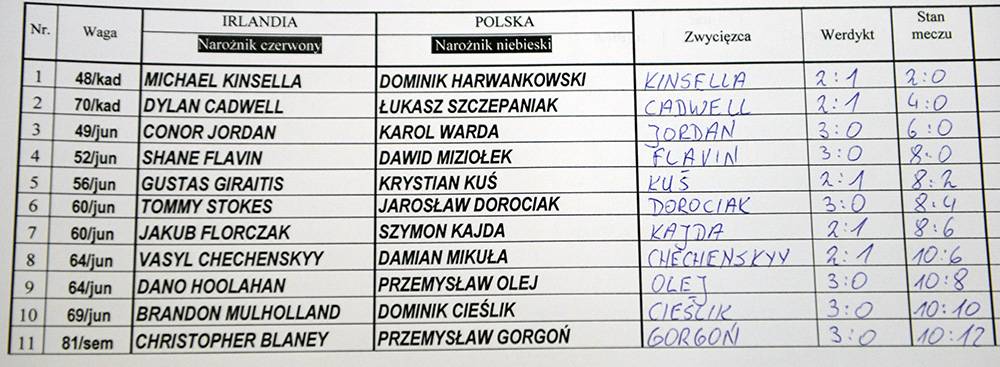 Nr. Waga IRLANDIA Narożnik czerwony POLSKA Narożnik niebieski Zwycięzca Werdykt Stan meczu
1 48/kad MICHAEL KINSELLA DOMINIK HARWANKOWSKI KINSELLA 2:1 2:0
2 70/kad DYLAN CADWELL ŁUKASZ SZCZEPANIAK CADWELL 2:1 4:0
3 49/jun CONOR JORDAN KAROL WARDA JORDAN 3:0 6:0
4 52/jun SHANE FLAVIN DAWID MIZIOŁEK FLAVIN 3:0 8:0
5 56/jun GUSTAS GIRAITIS KRYSTIAN KUŚ KUŚ 2:1 8:2
6 60/jun TOMMY STOKES JAROSŁAW DOROCIAK DOROCIAK 3:0 8:4
7 60/jun JAKUB FLORCZAK SZYMON KAJDA KAJDA 2:1 8:6
8 64/jun VASYL CHECHENSKYY DAMIAN MIKUŁA CHECHENSKYY 2:1 10:6
9 64/jun DANO HOOLAHAN PRZEMYSŁAW OLEJ OLEJ 3:0 10:8
10 69/jun BRANDON MULHOLLAND DOMINIK CIEŚLIK CIEŚLIK 3:0 10:10
11 81/sem CHRISTOPHER BLANEY PRZEMYSŁAW GORGOŃ GORGOŃ 3:0 10:12